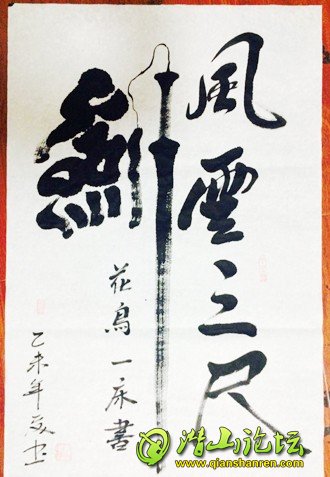 風雲三尺
劍
花鳥一床書
乙未年夏书
潜山论坛
www.qianshanren.com